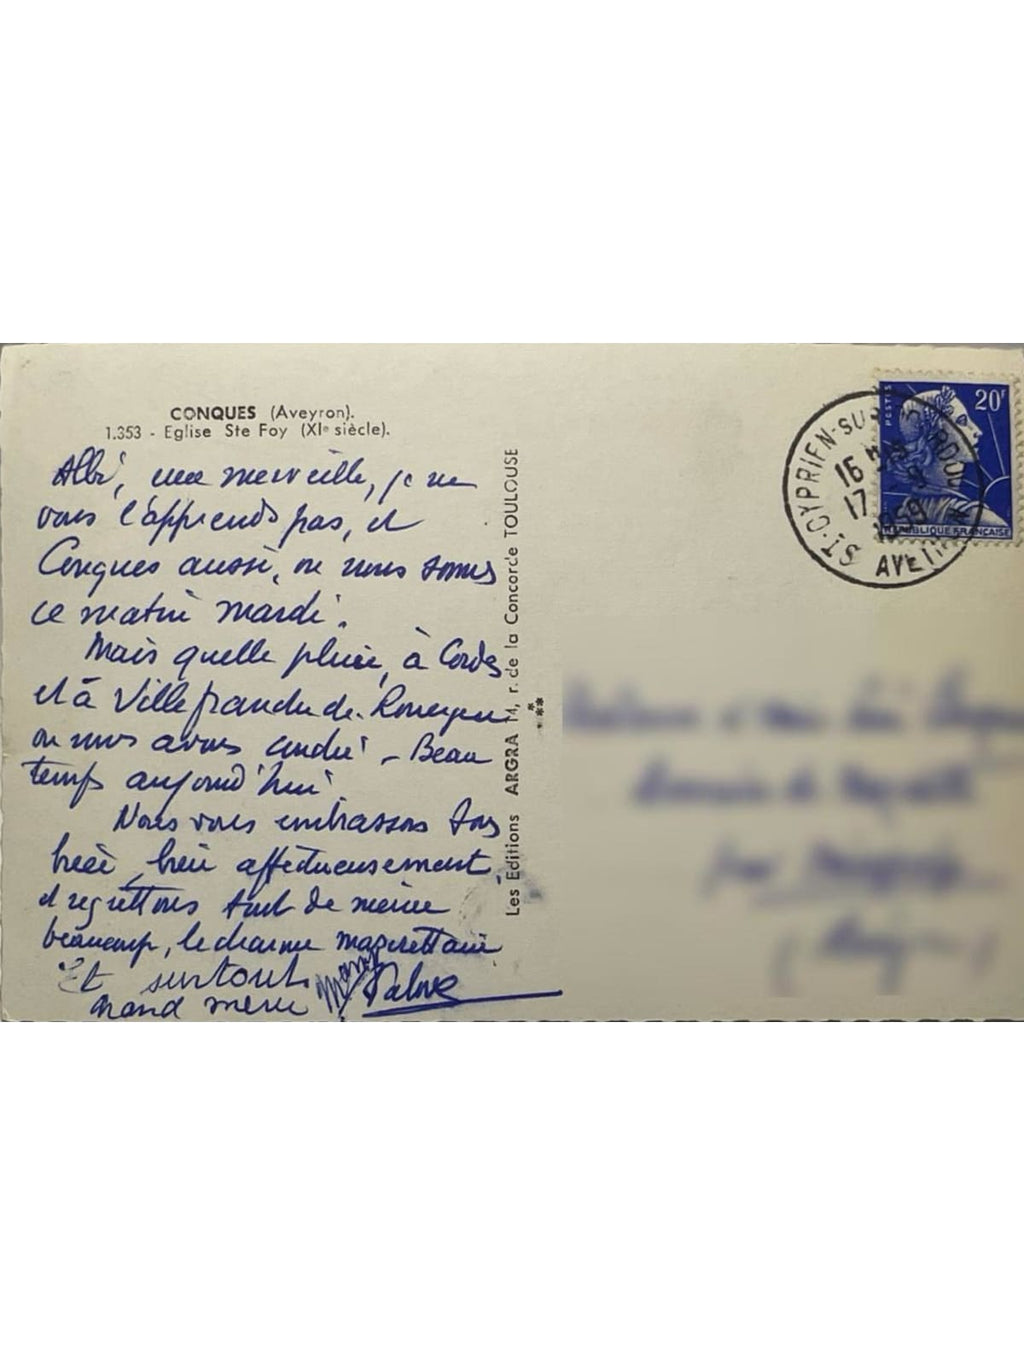 CONQUES (Aveyron).
1.353 - Eglise Ste Foy (XIe siècle).
Albi, une merveille, je ne
vous l'apprends pas, et
Conques aussi, où nous sommes
ce matin mardi.
Mais quelle pluie, à Cordes
et à Villefranche de Rouergue
où nous avons couché - Beau
temps aujourd'hui.
Nous vous embrassons tous
bien, bien affectueusement
et regrettons tout de même
beaucoup, le charme
Et surtout
grand mère
Les Editions ARGRA 14, r. de la Concorde TOULOUSE
20F
POSTES
REPUBLIQUE FRANÇAISE
ST-CYPRIEN-SUR-DOURDOU
16
17
AVEYRON